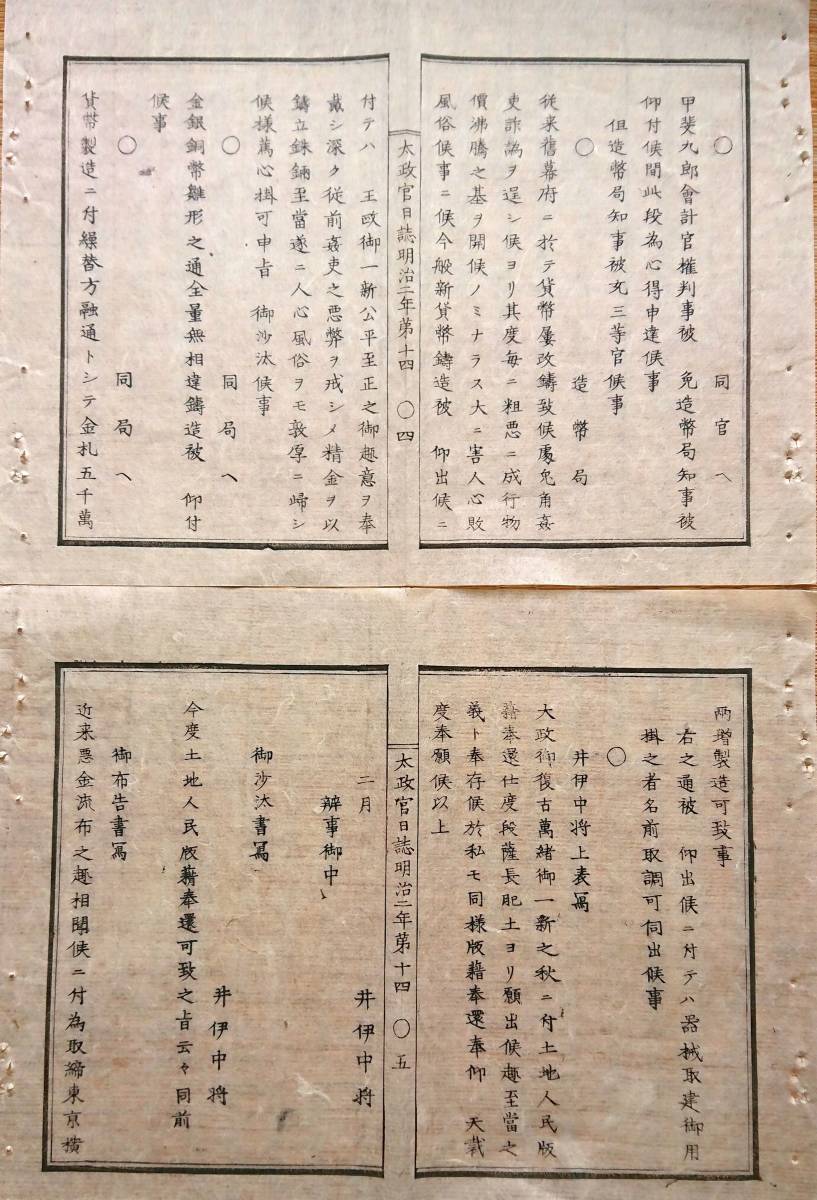 〇　同官へ
甲斐九郎會計官權判事被　免造幣局知事被
仰付候間此段為心得申達候事
但造幣局知事被允三等官候事
〇　造幣局
従来舊幕府ニ於テ貨幣屢改鋳致候處兎角姦
吏詐偽ヲ逞シ候ヨリ其度毎ニ粗悪ニ成行物
價沸騰之基ヲ開候ノミナラス大ニ害人心敗
風俗候事ニ候今般新貨幣鋳造被　仰出候ニ
太政官日誌明治二年第十四　〇四
付テハ　王政御一新公平至正之御趣意ヲ奉
戴シ深ク従前姦吏之悪弊ヲ戒シメ精金ヲ以
鑄立銖錙至當遂ニ人心風俗ヲモ敦厚ニ歸シ
候様篤心掛可申旨　御沙汰候事
〇　同局へ
金銀銅幣雛形之通全量無相違鑄造被　仰付
候事
〇　同局へ
貨幣製造ニ付繰替方融通トシテ金札五千萬
両増製造可致事
右之通被　仰出候ニ付テハ器械取建御用
掛之者名前取調可伺出候事
〇
井伊中将上表寫
大政御復古萬緒御一新之秋ニ付土地人民版
籍奉還仕度段薩長肥土ヨリ願出候趣至當之
義ト奉存候於私モ同様版籍奉還奉仰　天裁
度奉願候以上
太政官日誌明治二年第十四　〇五
二月　井伊中将
辨事御中
御沙汰書寫
井伊中将
今度土地人民版籍奉還可致之旨云々同前
御布告書寫
近来悪金流布之趣相聞候ニ付為取締東京横